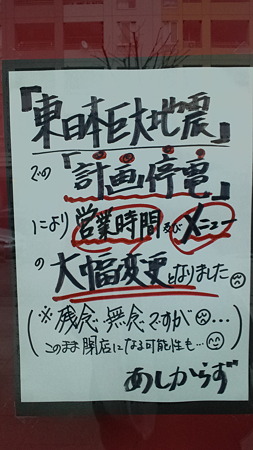 『東日本巨大地震』
での『計画停電』
により営業時間及びメニュー
の大幅変更となりました
(※残念無念ですが…
このまま閉店になる可能性も…)
あしからず